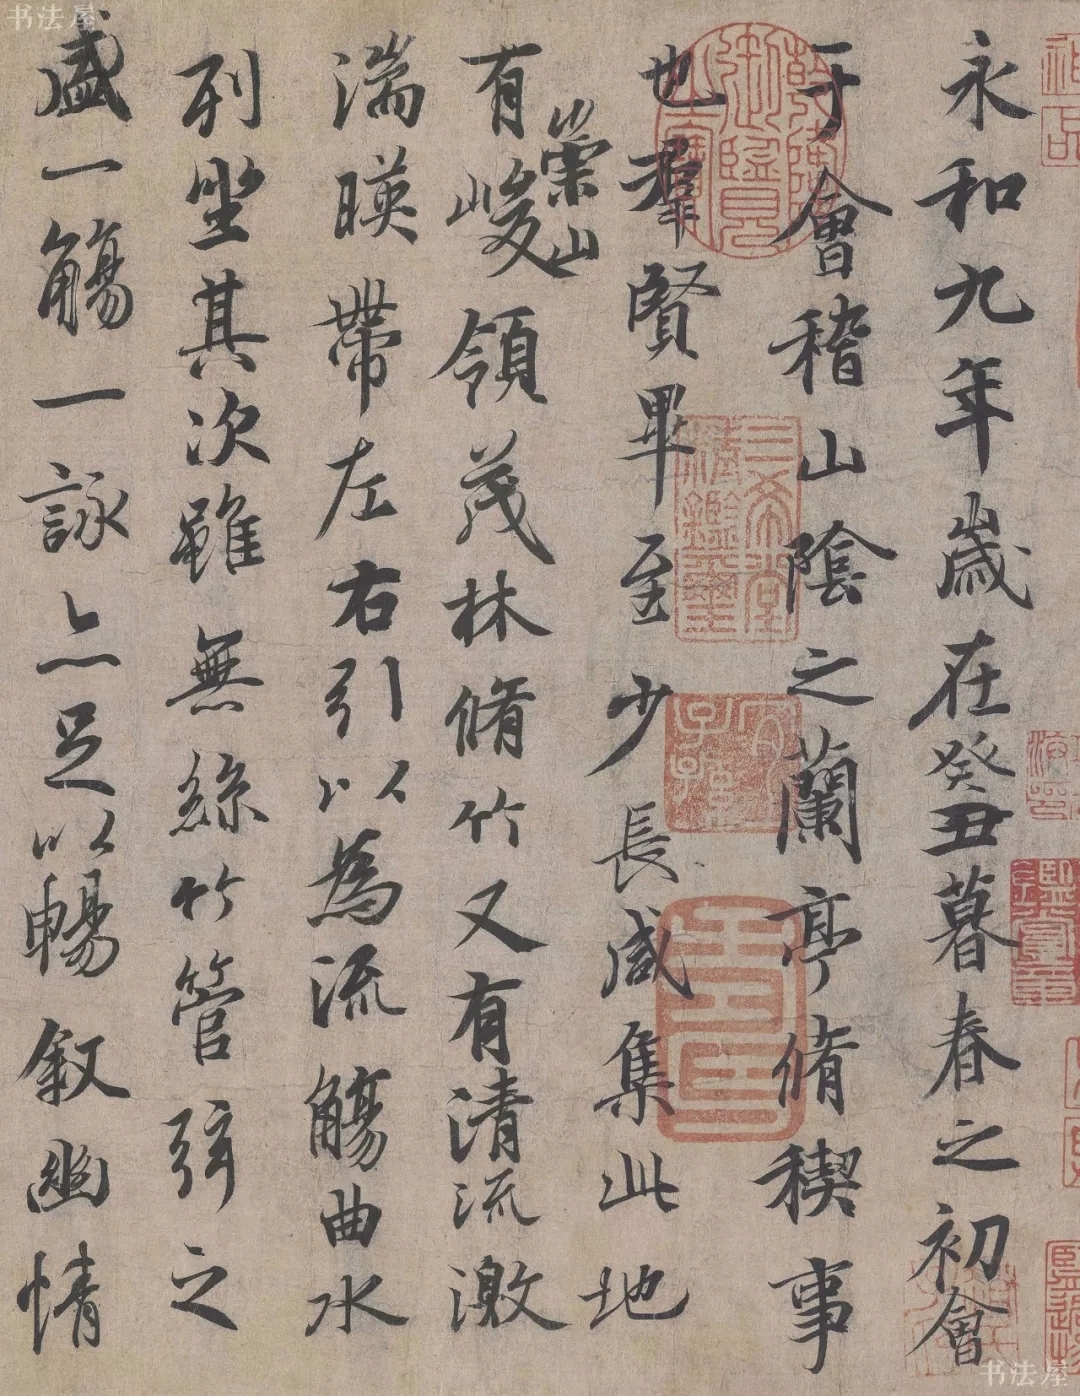 永和九年歲在癸丑暮春之初會
于會稽山陰之蘭亭脩稧事
也羣賢畢至少長咸集此地
有崇山峻領茂林脩竹又有清流激
湍暎帶左右引以為流觴曲水
列坐其次雖無絲竹管弦之
盛一觴一詠亦足以暢敘幽情
書法屋
书法屋